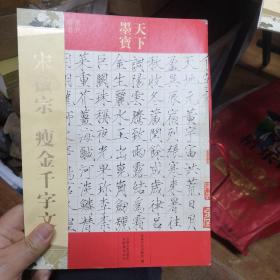 天下
墨寶
宋徽宗 瘦金千字文
天地元黃宇宙洪荒日月
盈昃辰宿列張寒來暑往
秋收冬藏閏餘成歲律呂
調陽雲騰致雨露結為霜
金生麗水玉出崑岡劍號
巨闕珠稱夜光果珍李柰
菜重芥薑海鹹河淡鱗潛